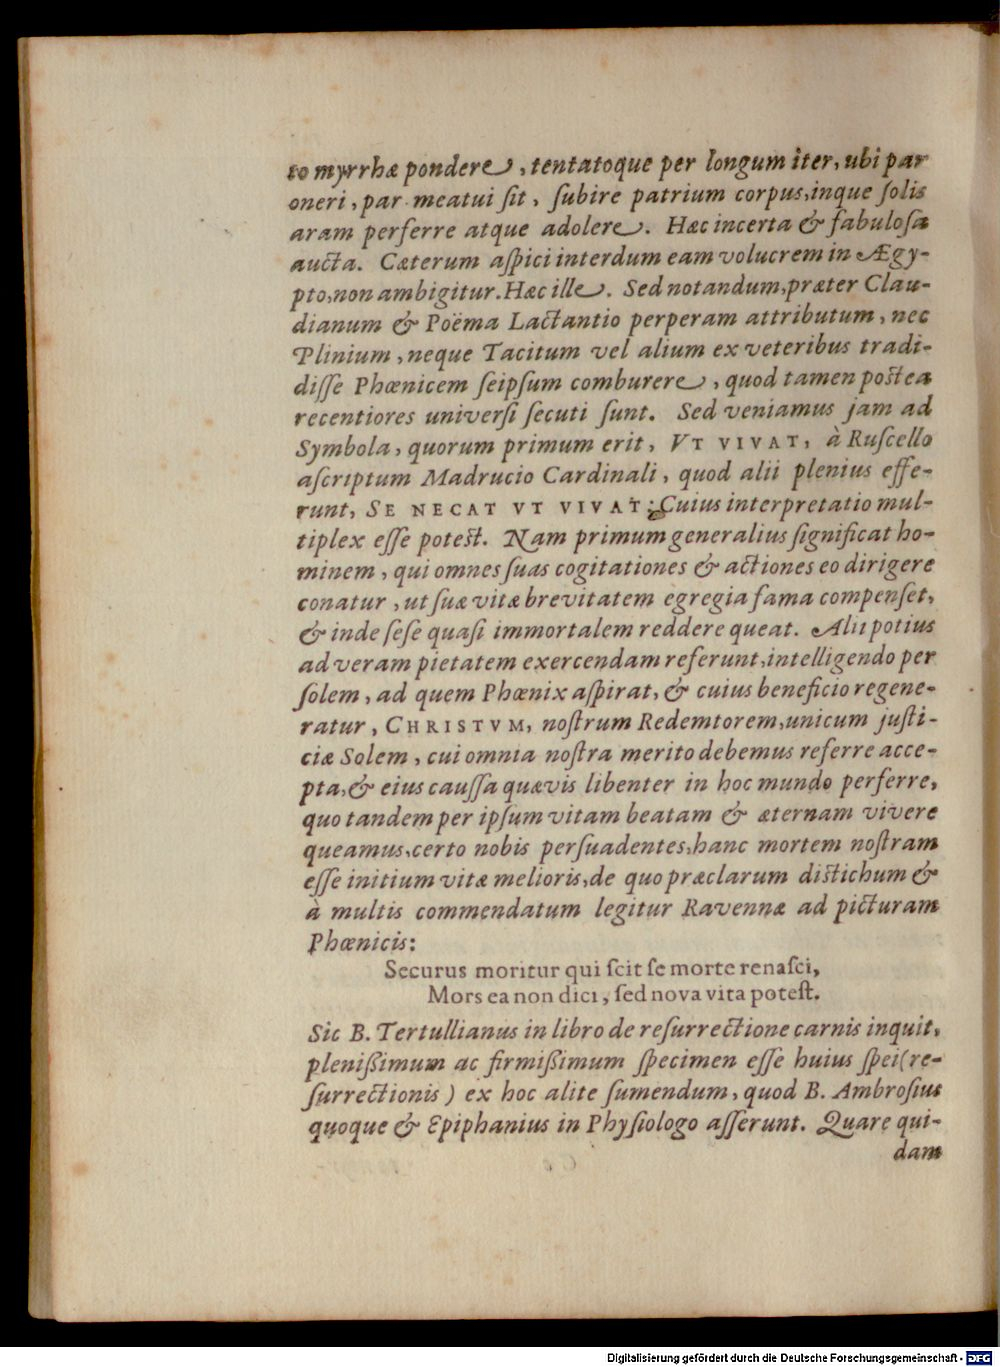 to myrrhæ pondere, tentatoque per longum iter, ubi par
oneri, par meatui ſit, ſubire patrium corpus, inque ſolis
aram perferre atque adolere. Hæc incerta & fabuloſa
aucta. Cæterum aſpici interdum eam volucrem in Ægy-
pto, non ambigitur. Hæc ille. Sed notandum, præter Clau-
dianum & Poëma Lactantio perperam attributum, nec
Plinium, neque Tacitum vel alium ex veteribus tradi-
diſſe Phœnicem ſeipſum comburere, quod tamen poſtea
recentiores univerſi ſecuti ſunt. Sed veniamus jam ad
Symbola, quorum primum erit, VT VIVAT, à Ruſcello
aſcriptum Madrucio Cardinali, quod alii plenius effe-
runt, SE NECAT VT VIVAT: Cuius interpretatio mul-
tiplex eſſe poteſt. Nam primum generalius ſignificat ho-
minem, qui omnes ſuas cogitationes & actiones eo dirigere
conatur, ut ſuæ vitæ brevitatem egregia fama compenſet,
& inde ſeſe quaſi immortalem reddere queat. Alii potius
ad veram pietatem exercendam referunt, intelligendo per
ſolem, ad quem Phœnix aſpirat, & cuius beneficio regene-
ratur, CHRISTVM, noſtrum Redemtorem, unicum juſti-
ciæ Solem, cui omnia noſtra merito debemus referre acce-
pta, & eius cauſſa quævis libenter in hoc mundo perferre,
quo tandem per ipſum vitam beatam & æternam vivere
queamus, certo nobis perſuadentes, hanc mortem noſtram
eſſe initium vitæ melioris, de quo præclarum diſtichum &
à multis commendatum legitur Ravennæ ad picturam
Phœnicis:
Securus moritur qui ſcit ſe morte renaſci,
Mors ea non dici, ſed nova vita poteſt.
Sic B. Tertullianus in libro de reſurrectione carnis inquit,
pleniſſimum ac firmiſſimum ſpecimen eſſe huius ſpei (re-
ſurrectionis) ex hoc alite ſumendum, quod B. Ambroſius
quoque & Epiphanius in Phyſiologo aſſerunt. Quare qui-
dam
Digitalisierung gefördert durch die Deutsche Forschungsgemeinschaft - DFG